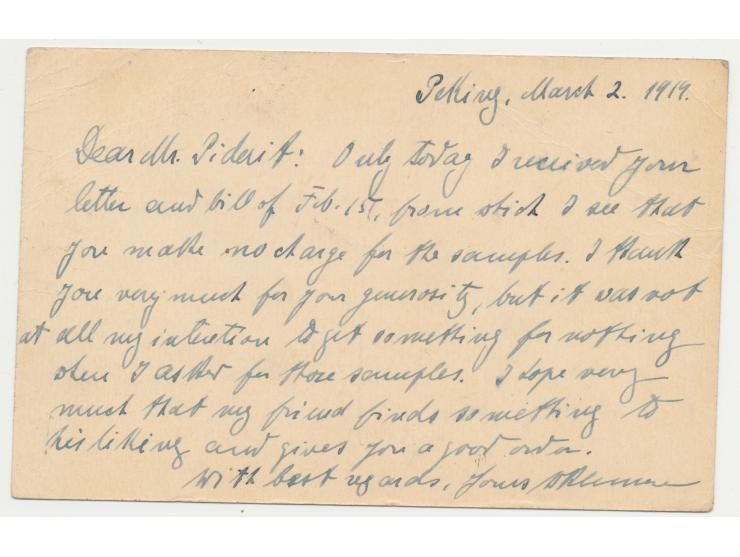 Peking, March 2. 1919.
Dear Mr. Piderit: Only today I received your
letter and bill of Feb. 15, from which I see that
you make no charge for the samples. I thank
you very much for your generosity, but it was not
at all my intention to get something for nothing
when I asked for those samples. I hope very
much that my friend finds something to
his liking and gives you a good order.
With best regards, Yours